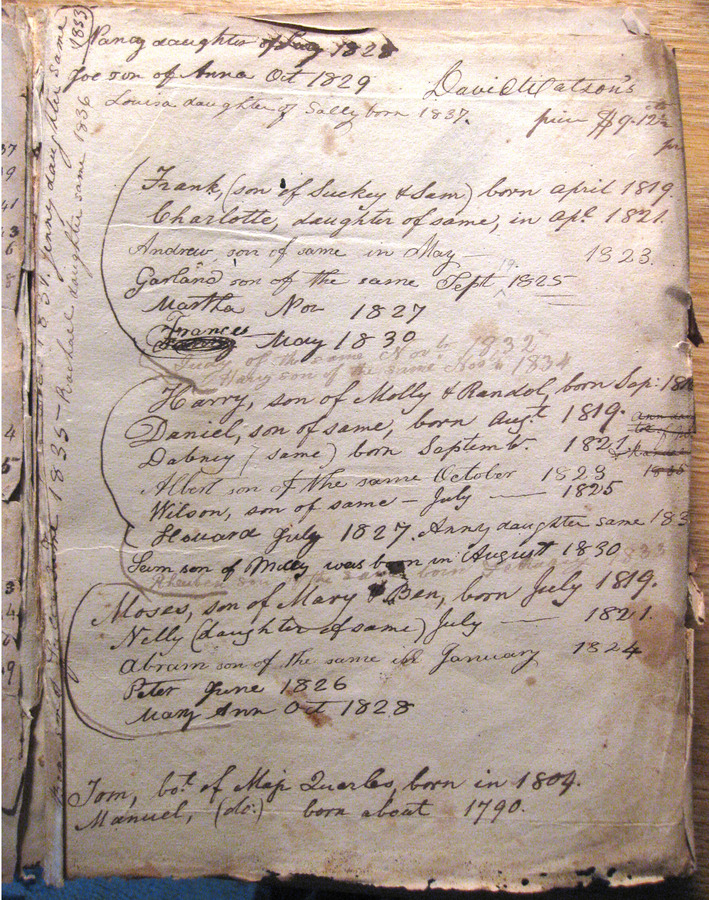 Nancy daughter of Lucy 1828
Joe son of Anna Oct 1829
David Watson's
Louisa daughter of Sally born 1837.
price $9.12½
Frank, (son of Suckey & Sam) born april 1819.
Charlotte, daughter of same, in apl. 1821.
Andrew, son of same in May — 1823.
Garland son of the same Sept 1825
Martha Nov 1827
Frances May 1830
of the same Novr 1832
Hary son of the same Novr 1834
Harry, son of Molly & Randol, born Sep:
Daniel, son of same, born Augt. 1819.
Dabney (same) born Septembr. 1821
Albert son of the same October 1823
Wilson, son of same — July — 1825
Howard July 1827. Anny daughter same
Sam son of Milly was born in August 1830
Rheuben son of the same born 1833
Moses, son of Mary & Ben, born July 1819.
Nelly (daughter of same) July — 1821.
Abram son of the same in January 1824
Peter June 1826
Mary Ann Oct 1828
Tom, bot. of Maj Quarles, born in 1804.
Manuel, (do:) born about 1790.
1835 — Rachael daughter same 1836
Jenny daughter same 1833